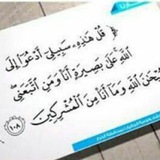 ﴿ قُلْ هَٰذِهِۦ سَبِيلِىٓ أَدْعُوٓا۟ إِلَى
ٱللَّهِ عَلَىٰ بَصِيرَةٍ أَنَا۠ وَمَنِ ٱتَّبَعَنِى
وَسُبْحَٰنَ ٱللَّهِ وَمَآ أَنَا۠ مِنَ ٱلْمُشْرِكِينَ
١٠٨